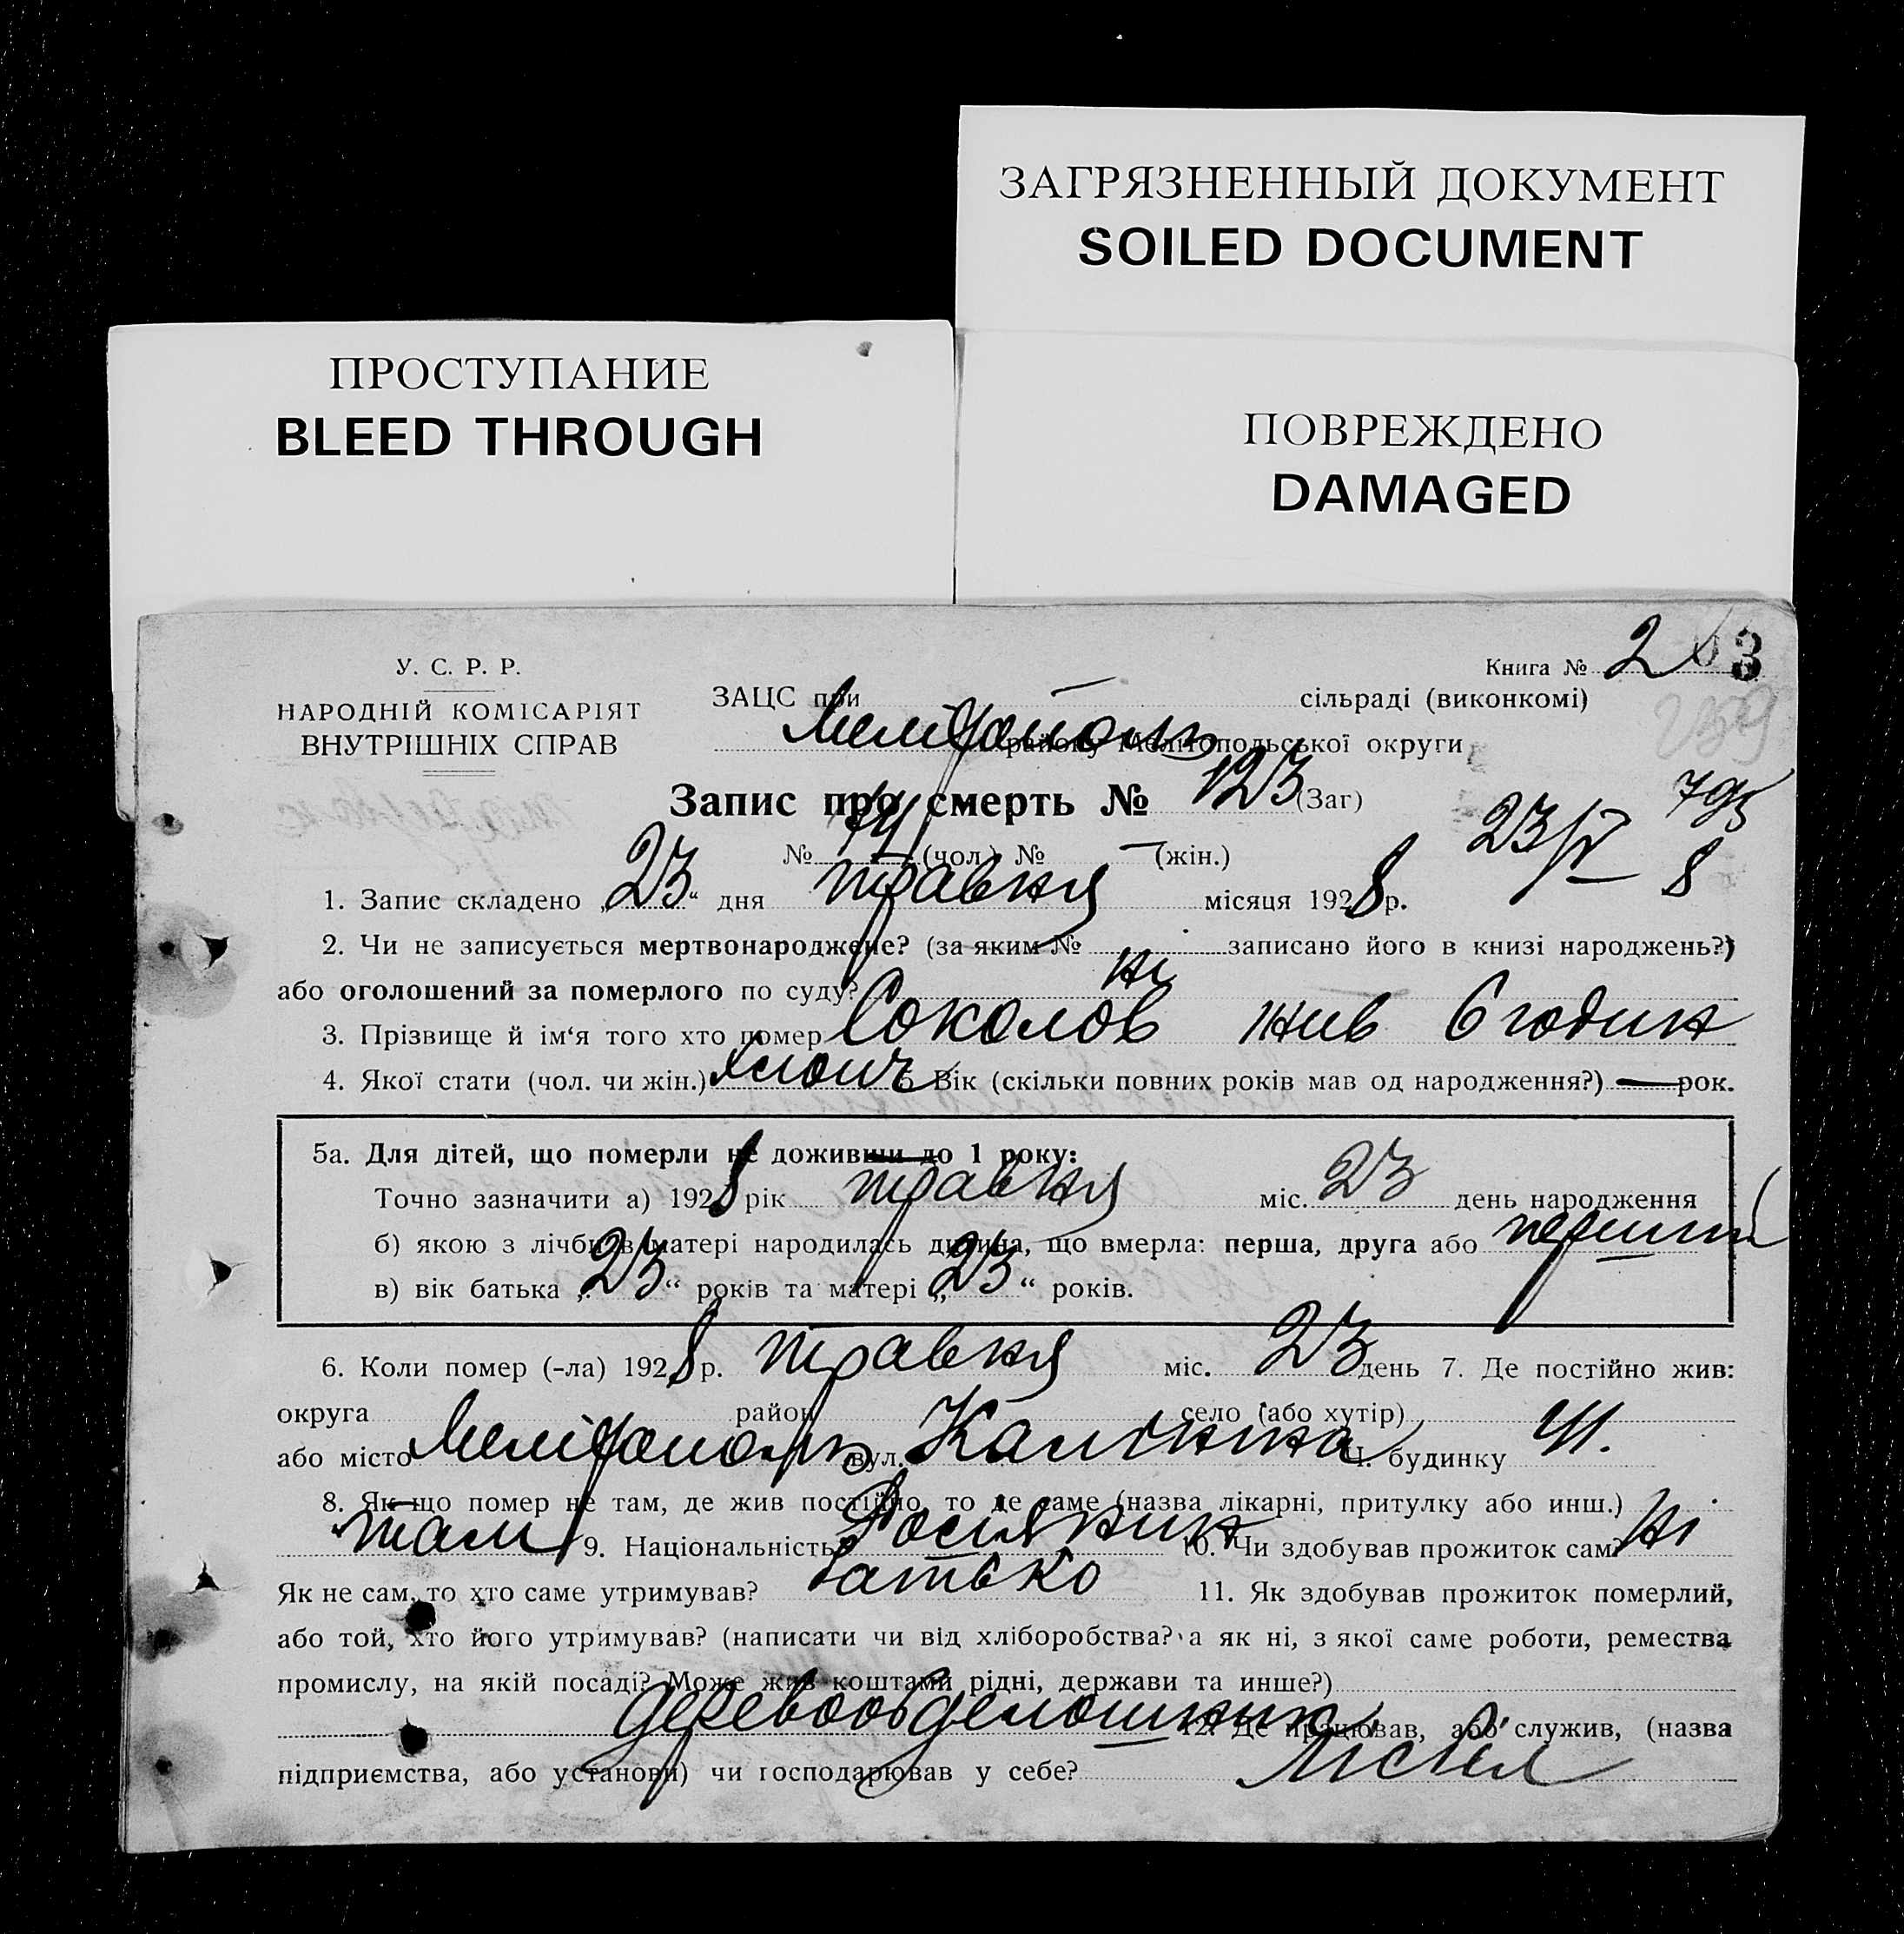 ЗАГРЯЗНЕННЫЙ ДОКУМЕНТ
SOILED DOCUMENT
ПРОСТУПАНИЕ
BLEED THROUGH
ПОВРЕЖДЕНО
DAMAGED
У. С. Р. Р.
НАРОДНІЙ КОМІСАРІЯТ
ВНУТРІШНІХ СПРАВ
Книга № 2
3
259
ЗАЦС при сільраді (виконкомі)
Мелітополь району Мелітопольської округи
Запис про смерть № 123 (Заг)
№ (чол.) № — (жін.)
23/V 8
1. Запис складено „23“ дня травня місяця 1928 р.
2. Чи не записується мертвонароджене? (за яким № записано його в книзі народжень?)
або оголошений за померлого по суду? ні
3. Прізвище й ім‘я того хто помер Соколов жив 6 годин
4. Якої стати (чол. чи жін.) 5 Вік (скільки повних років мав од народження?) — рок.
5а. Для дітей, що померли не доживши до 1 року:
Точно зазначити а) 1928 рік травня міс. 23 день народження
б) якою з лічби в матері народилась дитина, що вмерла: перша, друга або
в) вік батька „23“ років та матері „23“ років.
6. Коли помер (-ла) 1928 р. травня міс. 23 день 7. Де постійно жив:
округа район село (або хутір)
або місто Мелітополь вул. Калініна Ч. будинку
8. Як що помер не там, де жив постійно, то де саме (назва лікарні, притулку або инш.)
там 9. Національність Росіянин 10. Чи здобував прожиток сам? ні
Як не сам, то хто саме утримував? батько 11. Як здобував прожиток померлий,
або той, хто його утримував? (написати чи від хліборобства? а як ні, з якої саме роботи, ремества
промислу, на якій посаді? Може жив коштами рідні, держави та инше?)
12. Де працював, або служив, (назва
підприємства, або установи) чи господарював у себе?